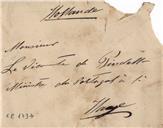 Hollande
Monsieur
Le Vicomte de Pindella
Ministre de Portugal à la
Haye